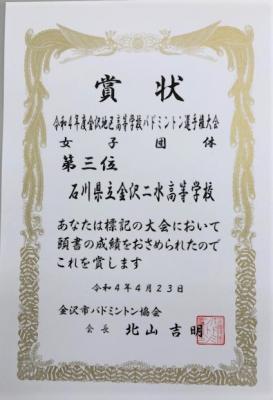 賞状
令和4年度金沢地区高等学校バドミントン選手権大会
女子団体
第三位
石川県立金沢二水高等学校
あなたは標記の大会において
頭書の成績をおさめられたので
これを賞します
令和4年4月23日
金沢市バドミントン協会
会長 北山吉明